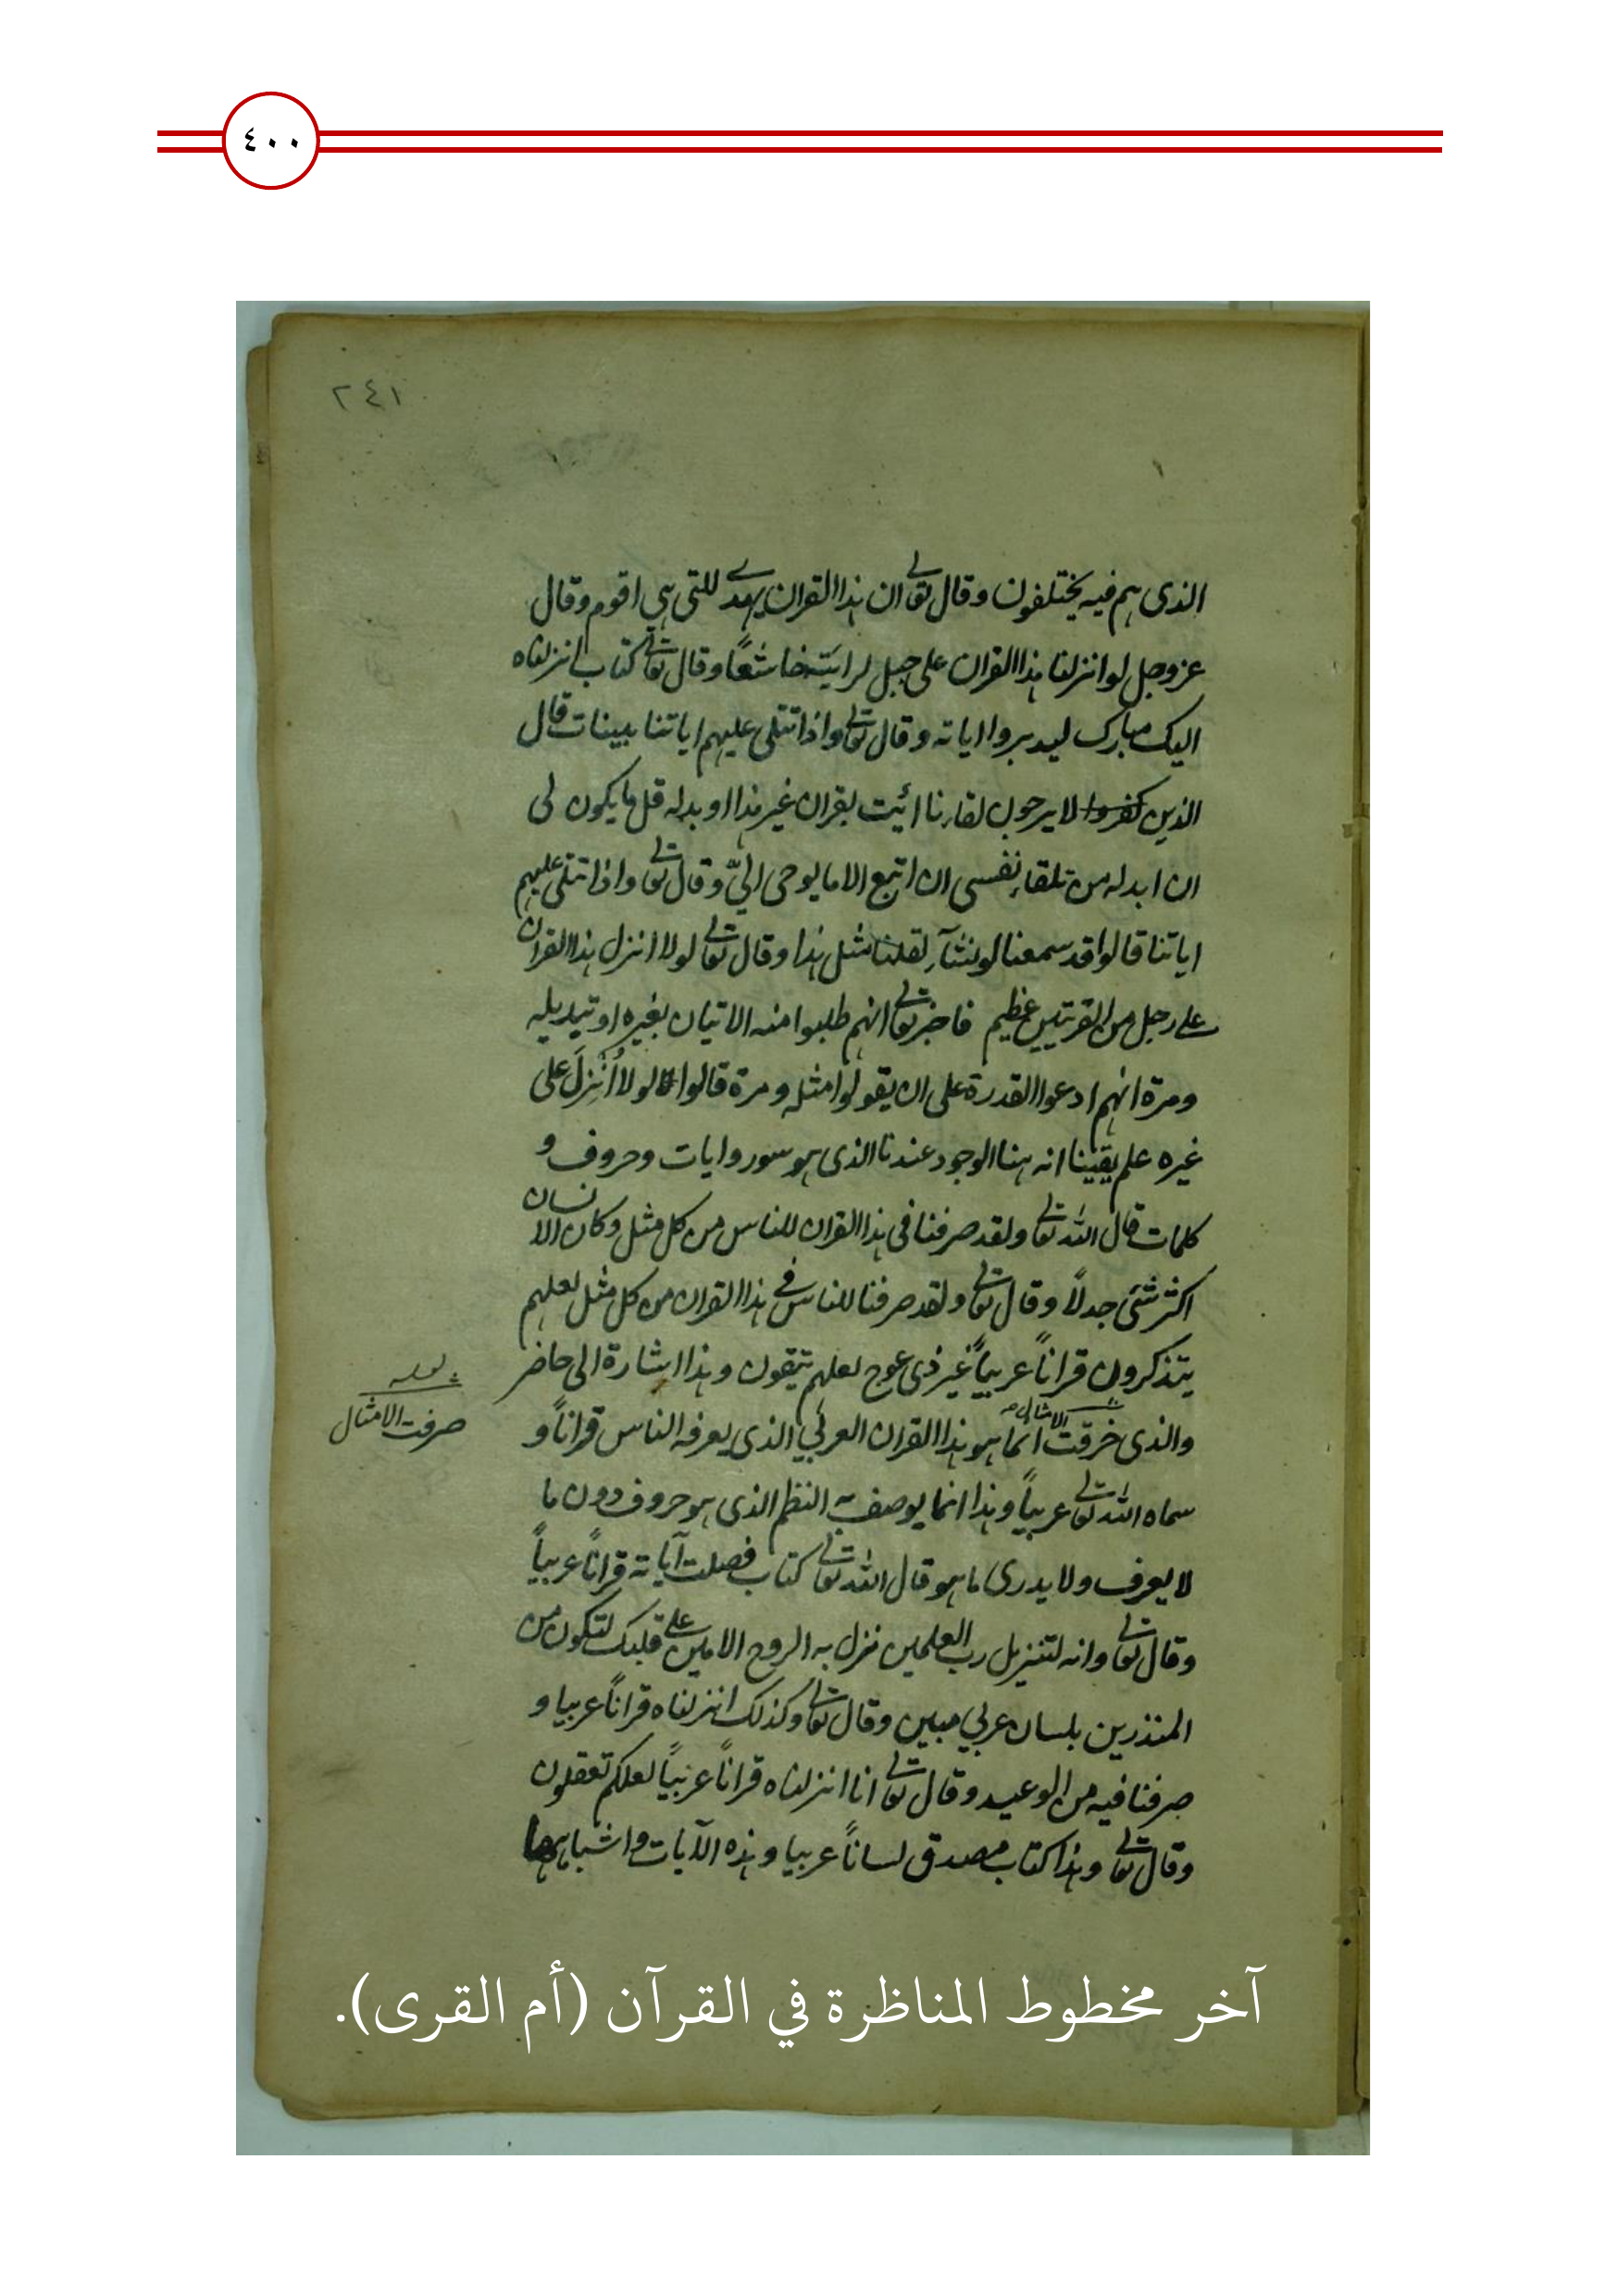 ٤٠٠
٢٤١
الذى هم فيه يختلفون وقال تعا لى ان هذا القران يهدى للتى هي اقوم وقال
عز وجل لو انزلنا هذا القران على جبل لرايته خاشعًا وقال تعالى كتاب انزلناه
اليك مبارك ليدبروا اياته وقال تعالى واذا تتلى عليهم اياتنا بينات قال
الذين كفروا لا يرجون لقاءنا ائيت بقران غير هذا او بدله قل ما يكون لى
ان ابدله من تلقاء نفسى ان اتبع الا ما يوحى اليّ وقال تعالى واذا تتلى عليهم
اياتنا قالوا قد سمعنا لو نشآء لقلنا مثل هذا وقال تعالى لولا انزل هذا القران
على رجل من القريتين عظيم فاخبر تعالى انهم طلبوا منه الاتيان بغيره او تبديله
ومرة انهم ادعوا القدرة على ان يقولوا مثله ومرة قالوا لولا أُنْزِلَ على
غيره علم يقينا انه هنا الوجود عندنا الذى هو سور وايات وحروف و
كلمات قال الله تعالى ولقد صرفنا فى هذا القران للناس من كل مثل وكان الانسان
اكثر شئ جدلًا وقال تعالى ولقد صرفنا للناس في هذا القران من كل مثل لعلهم
يتذكرون قراناً عربياً غير ذى عوج لعلهم يتقون وهذا اشارة الى حاضر
والذى خرقت الامثال انما هو هذا القران العربي الذى يعرفه الناس قراناً و
لعله
صرفت الامثال
سماه الله تعالى عربياً وهذا انما يوصف به النظم الذى هو حروف دون ما
لا يعرف ولا يدرى ما هو قال الله تعالى كتاب فصلت آياته قراناً عربياً
وقال تعالى وانه لتنزيل رب العلمين نزل به الروح الامين على قلبك لتكون من
المنذرين بلسان عربي مبين وقال تعالى وكذلك انزلناه قراناً عربيا و
صرفنا فيه من الوعيد وقال تعالى انا انزلناه قراناً عربياً لعلكم تعقلون
وقال تعالى وهذا كتاب مصدق لساناً عربيا وهذه الآيات واشباهها
آخر مخطوط المناظرة في القرآن (أم القرى).